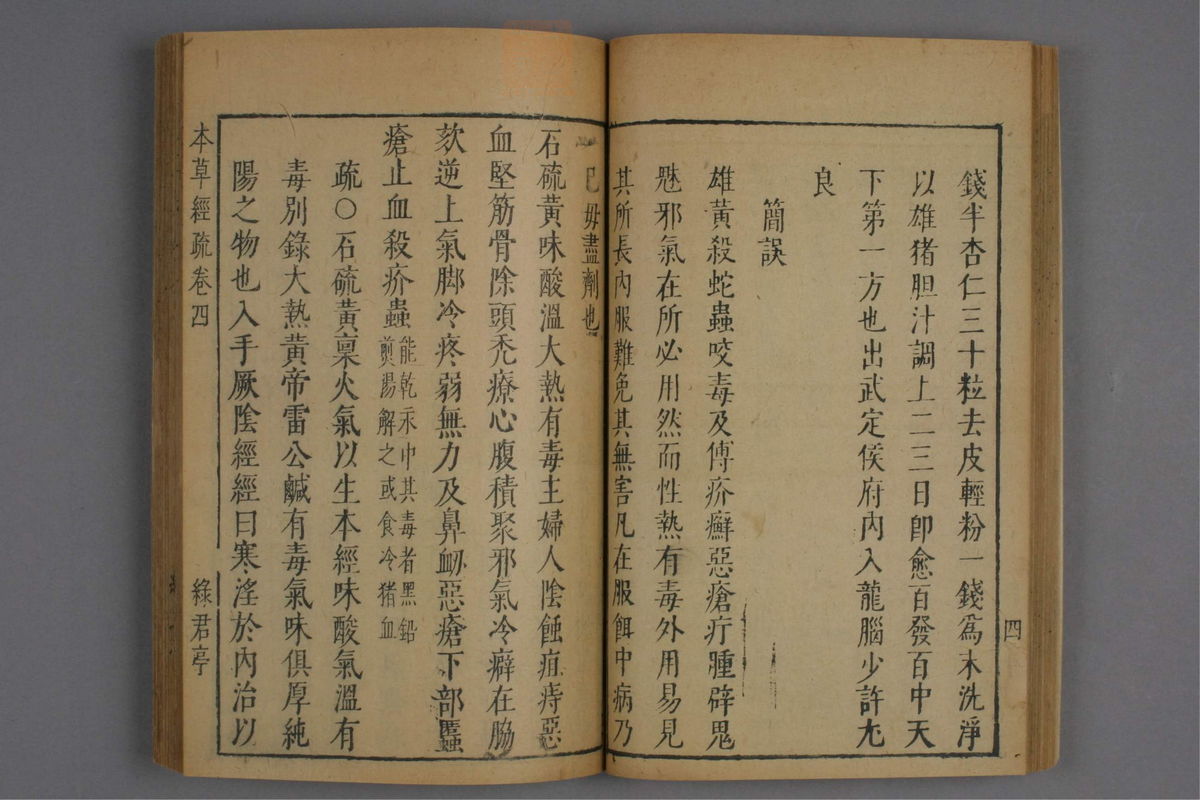 錢半杏仁三十粒去皮輕粉一錢爲末洗淨
以雄猪胆汁調上二三日卽愈百發百中天
下第一方也出武定侯府內入龍腦少許尤
良
簡誤
雄黃殺蛇蟲咬毒及傅疥癬惡瘡疔腫辟鬼
魅邪氣在所必用然而性熱有毒外用易見
其所長內服難免其無害凡在服餌中病乃
四
已毋盡劑也
石硫黃味酸溫大熱有毒主婦人陰蝕疽痔惡
血堅筋骨除頭禿療心腹積聚邪氣冷癖在脇
欬逆上氣脚冷疼弱無力及鼻衂惡瘡下部䘌
瘡止血殺疥蟲能乾汞中其毒者黑鉛
煎湯解之或食冷猪血
疏○石硫黃稟火氣以生本經味酸氣溫有
毒別錄大熱黃帝雷公鹹有毒氣味俱厚純
陽之物也入手厥陰經經曰寒淫於內治以
本草經疏卷四
綠君亭